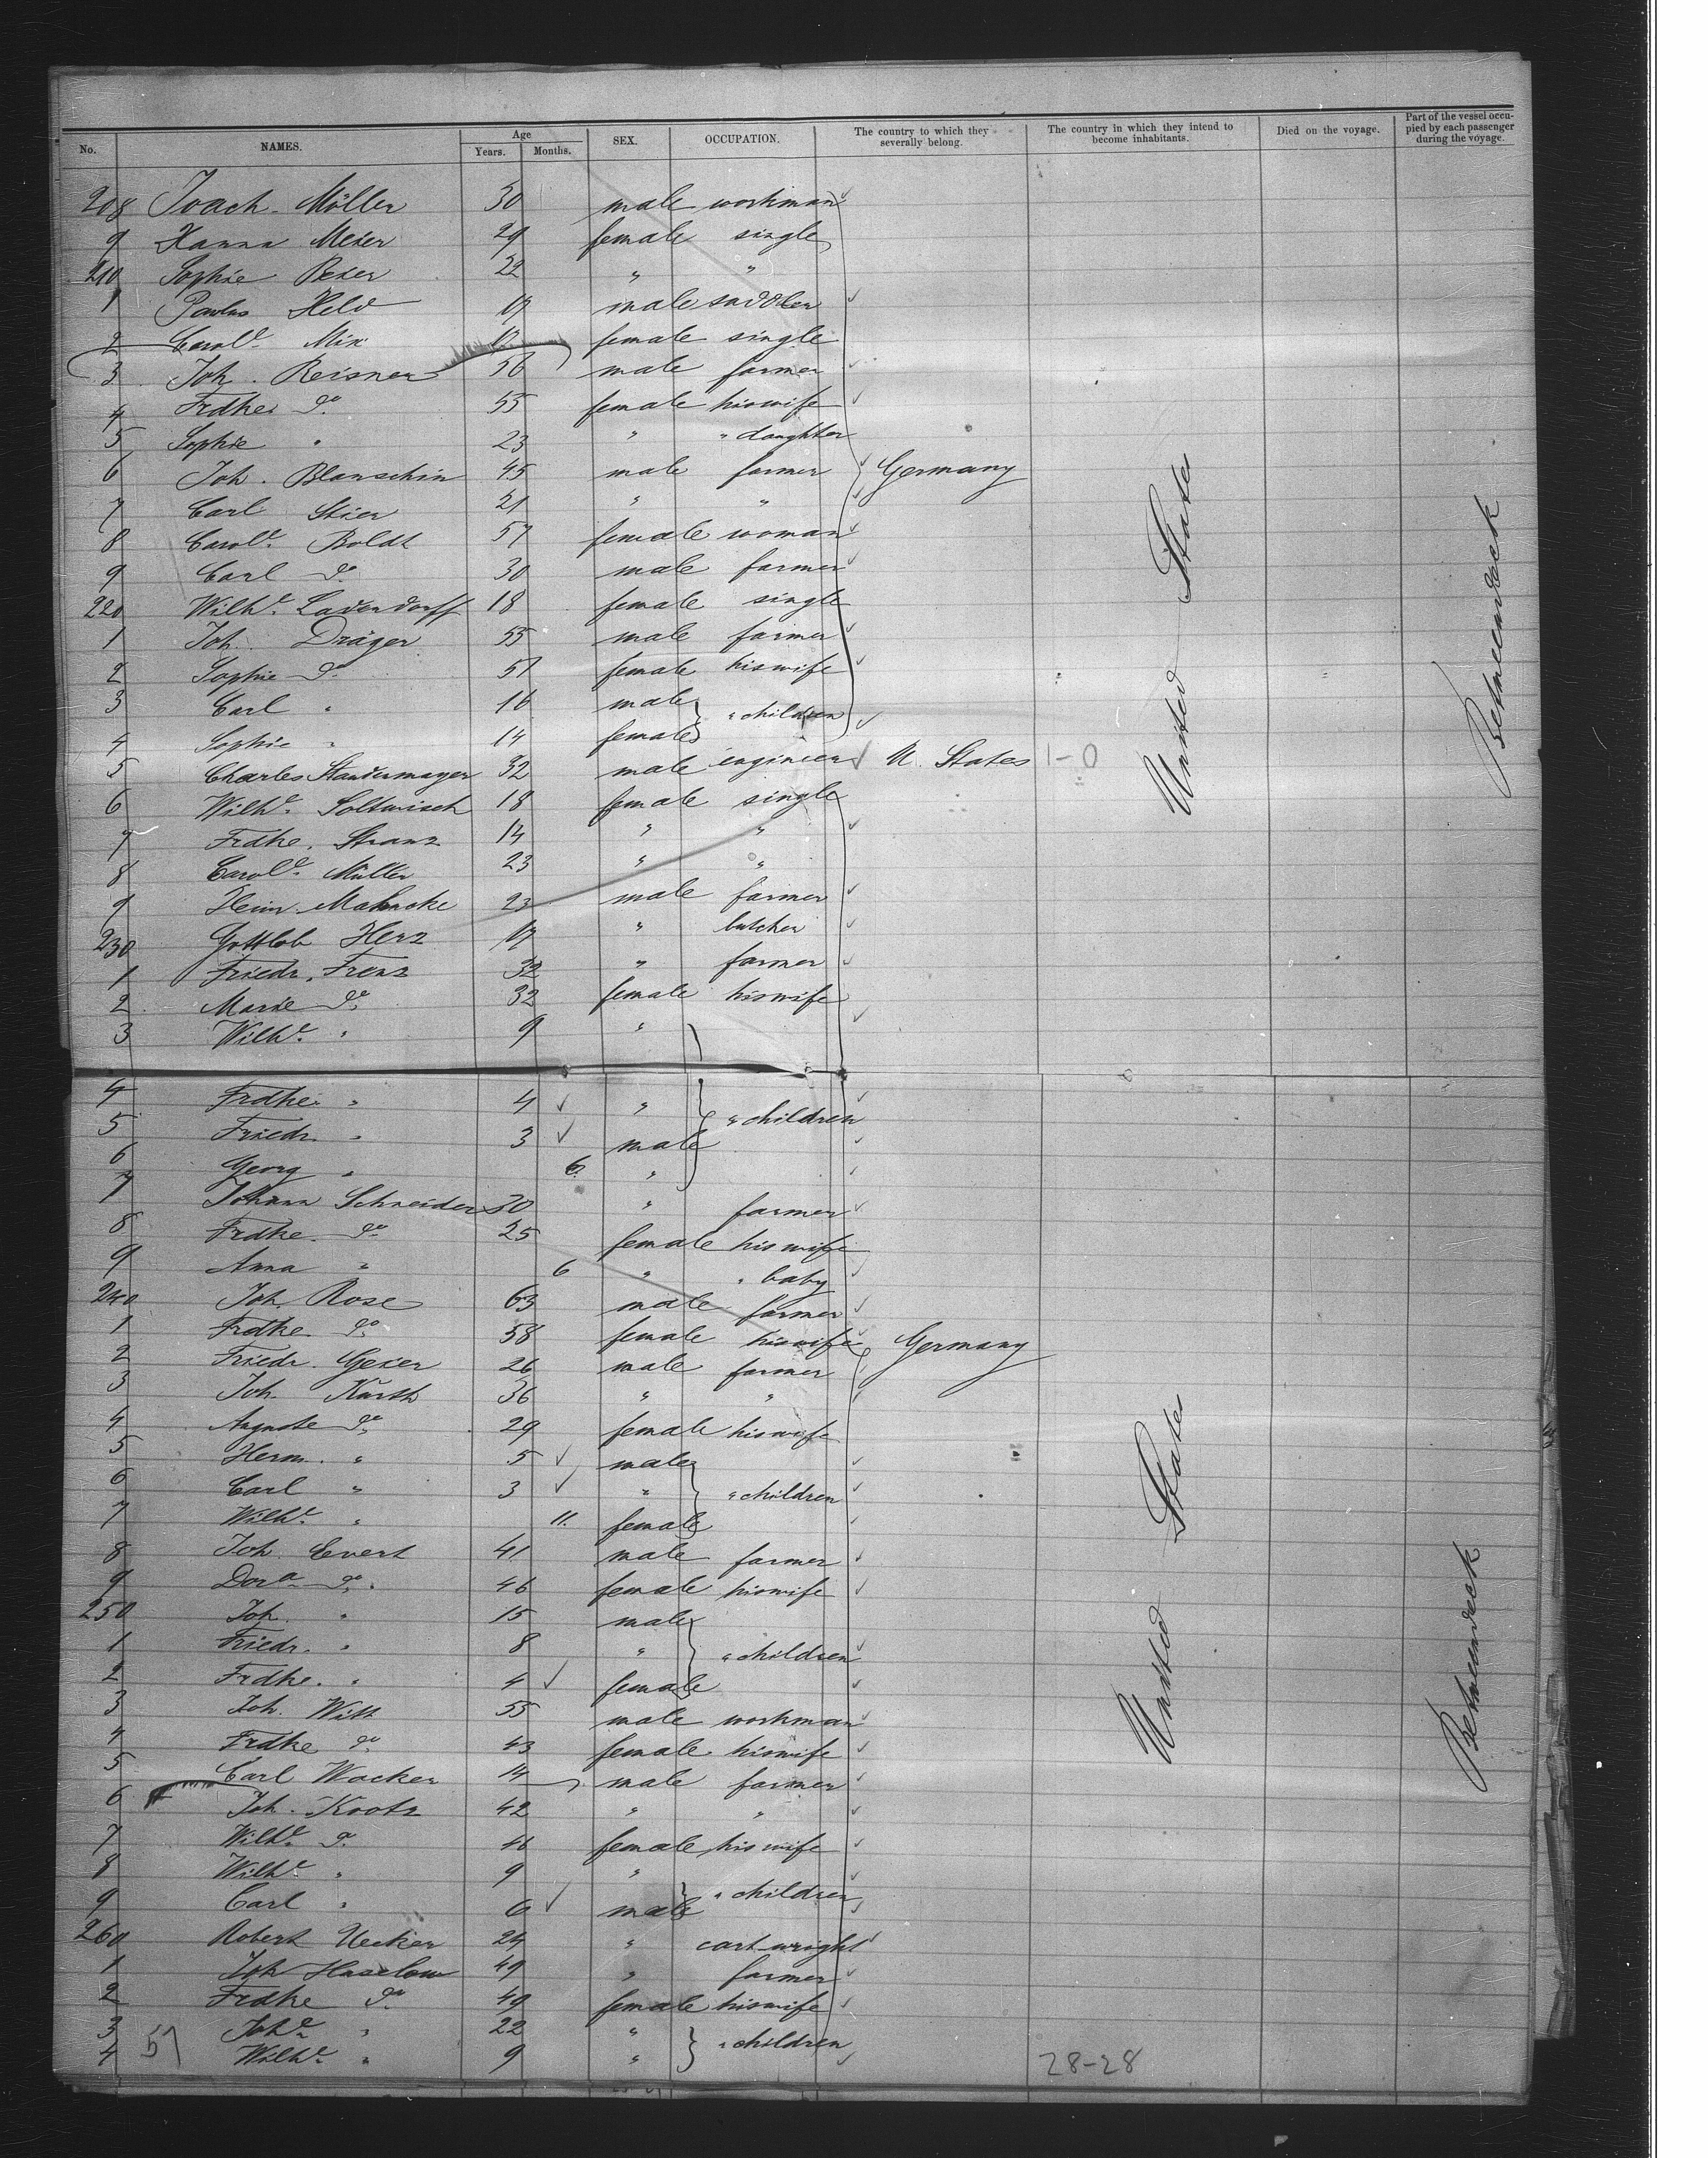 No. NAMES. Age Years. Months. SEX. OCCUPATION. The country to which they severally belong. The country in which they intend to become inhabitants. Died on the voyage. Part of the vessel occupied by each passenger during the voyage.
208 Joach. Möller 30 male workman
9 Hanna Meier 29 female single
210 Sophie Beier 22 " "
1 Paulus Held 17 male saddler
2 Carole. Mix female single
3 Joh. Reisner 56 male farmer
4 Frdke. do 55 female his wife
5 Sophie " 23 " " daughter
6 Joh. Blanschin 45 male farmer Germany
7 Carl Stier 21 " "
8 Carole. Boldt 57 female woman
9 Carl do 30 male farmer
220 Wilhe. Ladendorff 18 female single
1 Joh. Dräger 55 male farmer
2 Sophie do 51 female his wife
3 Carl " 16 male
" children
4 Sophie " 14 female
5 Charles Staudermayer 32 male engineer U. States 1-0
6 Wilhe. Soltwisch 18 female single
7 Frdke. Stranz 14 " "
8 Carole. Müller 23 " "
9 Heinr. Mahncke 23 male farmer
230 Gottlob Herz 17 " butcher
1 Friedr. Frenz 32 " farmer
2 Marie do 32 female his wife
3 Wilhe. " 9 "
4 Frdke. " 4 " " children
5 Friedr. " 3 male
6 Georg " 6 "
7 Johann Schneider 30 " farmer
8 Frdke. do 25 female his wife
9 Anna " 6 " " baby
240 Joh. Rose 63 male farmer
1 Frdke. do 58 female his wife Germany
2 Friedr. Geier 26 male farmer
3 Joh. Kurth 36 " "
4 Auguste do 29 female his wife
5 Herm. " 5 male
6 Carl " 3 " " children
7 Wilhe. " 11. female
8 Joh. Evert 41 male farmer
9 Dora do 46 female his wife
250 Joh. " 15 male
1 Friedr. " 8 " " children
2 Frdke. " 4 female
3 Joh. Witt 55 male workman
4 Frdke do 43 female his wife
5 Carl Wacker 14 male farmer
6 Joh. Kootz 42 " "
7 Wilhe. do 46 female his wife
8 Wilhe. " 9 "
" children
9 Carl " 6 male
260 Robert Uecker 24 " cartwright
1 Joh Haselow 49 " farmer
2 Frdke do 49 female his wife
3 Johe. " 22 "
" children
4 Wilhe. " 9 "
57
28-28
United States
United States
Betweendeck
Betweendeck